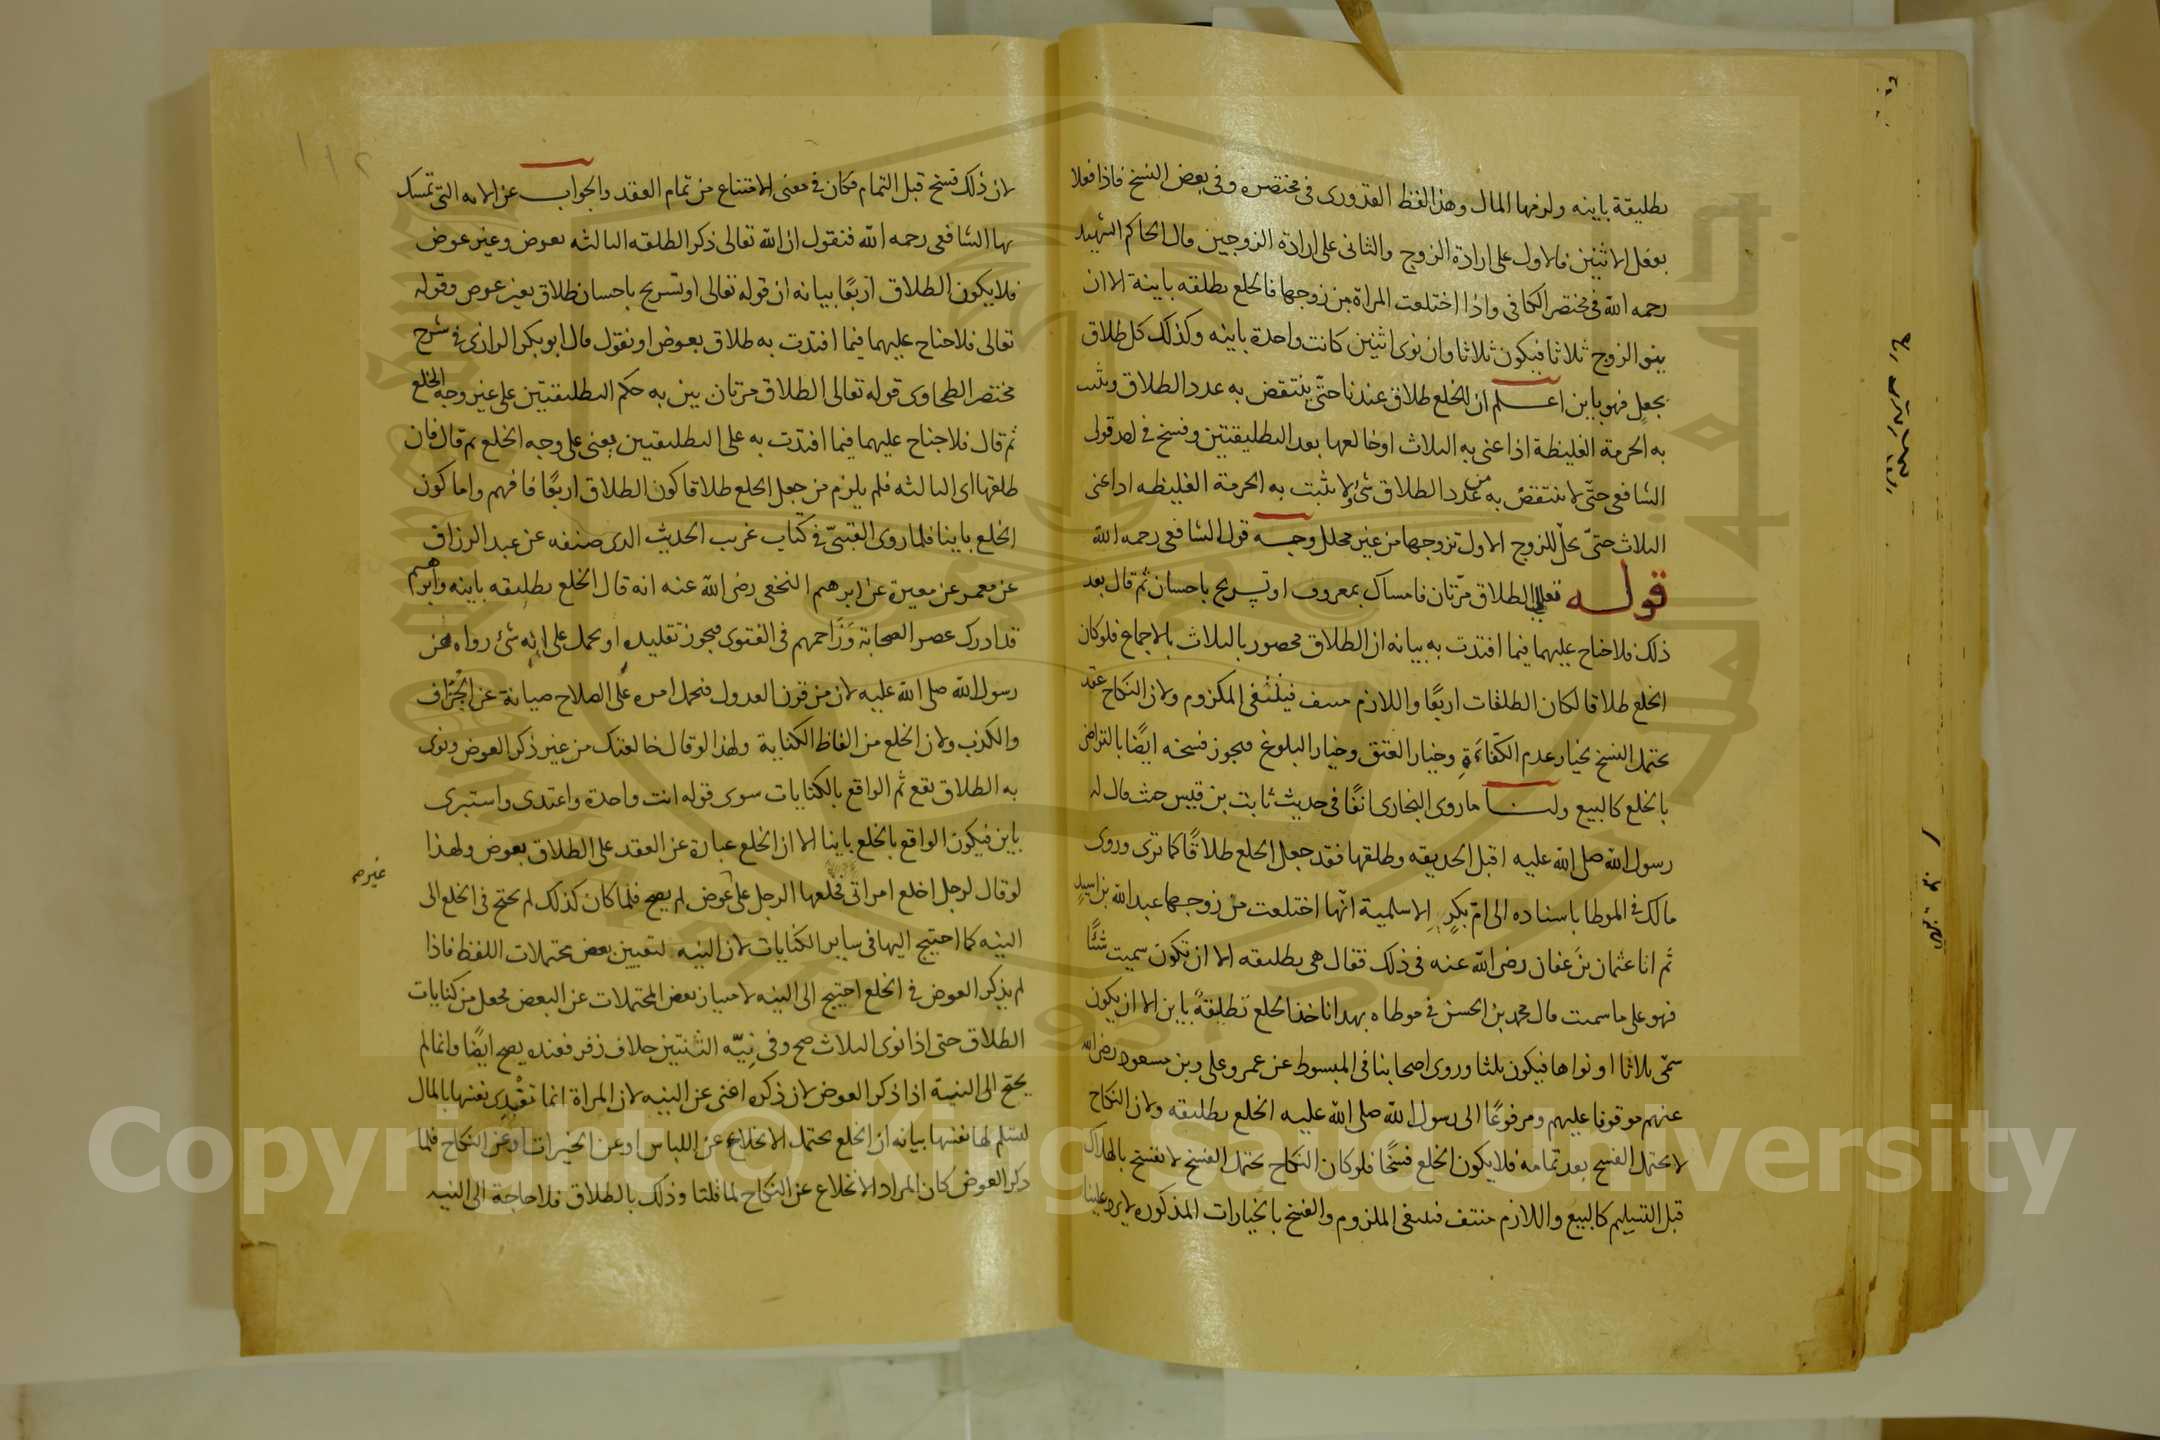 تطليقة باينه ولزمها المال وهذا لفظ القدوري في مختصره وفي بعض النسخ فاذا فعلا
بفعل الاثنين فالاول على ارادة الزوج والثاني على ارادة الزوجين قال الحاكم الشهيد
رحمه الله في مختصر الكافي واذا اختلعت المراة من زوجها فالخلع تطليقه باينة الا ان
ينو الزوج ثلاثا فيكون ثلاثا وان نوى اثنين كانت واحدة باينه وكذلك كل طلاق
بجعل فهو باين اعلم ان الخلع طلاق عندنا حتى ينتقض به عدد الطلاق ويثبت
به الحرمة الغليظة اذا عنى به الثلاث او خالعها بعد التطليقتين وفسخ في احد قولي
الشافعي حتى لا ينتقض به من عدد الطلاق شئ ولا يثبت به الحرمة الغليظه اذا عنى
الثلاث حتى يحل للزوج الاول تزوجها من غير محلل وجه قول الشافعي رحمه الله
قوله تعالى الطلاق مرتان فامساك بمعروف او تسريح باحسان ثم قال بعد
ذلك فلا جناح عليهما فيما افتدت به بيانه ان الطلاق محصور بالثلاث بالاجماع فلو كان
الخلع طلاقا لكان الطلقات اربعا واللازم منتف فينتفي الملزوم ولان النكاح عقد
يحتمل الفسخ بخيار عدم الكفاءة وخيار العتق وخيار البلوغ فيجوز فسخه ايضا بالتراضي
بالخلع كالبيع ولنا ما روى البخاري انفا في حديث ثابت بن قيس حيث قال له
رسول الله صلى الله عليه اقبل الحديقه وطلقها فقد جعل الخلع طلاقا كما ترى وروى
مالك في الموطا باسناده الى ام بكر الاسلمية انها اختلعت من زوجها عبد الله بن اسيد
ثم اتا عثمان بن عفان رضى الله عنه في ذلك فقال هي تطليقه الا ان تكون سميت شئا
فهو على ما سميت قال محمد بن الحسن في موطاه بهذا ناخذ الخلع تطليقة باين الا ان يكون
سمى ثلاثا او نواها فيكون ثلثا وروى اصحابنا في المبسوط عن عمر وعلي وبن مسعود رضى الله
عنهم موقوفا عليهم ومرفوعا الى رسول الله صلى الله عليه الخلع تطليقه ولان النكاح
لا يحتمل الفسخ بعد تمامه فلا يكون الخلع فسخا فلو كان النكاح يحتمل الفسخ لانفسخ بالهلاك
قبل التسليم كالبيع واللازم منتف فينتفي الملزوم والفسخ بالخيارات المذكوره لا يرد علينا
لان ذلك فسخ قبل التمام فكان في معنى الامتناع من تمام العقد والجواب عن الايه التي تمسك
بها الشافعي رحمه الله فنقول ان الله تعالى ذكر الطلقه الثالثه بعوض وغير عوض
فلا يكون الطلاق اربعا بيانه ان قوله تعالى او تسريح باحسان طلاق بغير عوض وقوله
تعالى فلا جناح عليهما فيما افتدت به طلاق بعوض او نقول قال ابو بكر الرازي في شرح
مختصر الطحاوى قوله تعالى الطلاق مرتان بين به حكم التطليقتين على غير وجه الخلع
ثم قال فلا جناح عليهما فيما افتدت به على التطليقتين يعني على وجه الخلع ثم قال فان
طلقها اى الثالثه فلم يلزم من جعل الخلع طلاقا كون الطلاق اربعا فافهم واما كون
الخلع باينا فلما روى القتبي في كتاب غريب الحديث الذى صنفه عن عبد الرزاق
عن معمر عن مغيرة عن ابرهيم النخعي رضى الله عنه انه قال الخلع تطليقه باينه وابرهيم
قد ادرك عصر الصحابة وزاحمهم في الفتوى فيجوز تقليده او يحمل على انه شئ رواه عن
رسول الله صلى الله عليه لان من قرن العدول فنحمل امره على الصلاح صيانة عن الجزاف
والكذب ولان الخلع من الفاظ الكناية ولهذا لو قال خالعتك من غير ذكر العوض ونوى
به الطلاق يقع ثم الواقع بالكنايات سوى قوله انت واحدة واعتدى واستبرى
باين فيكون الواقع بالخلع باينا الا ان الخلع عبارة عن العقد على الطلاق بعوض ولهذا
لو قال لرجل اخلع امراتي فخلعها الرجل على عوض لم يصح فلما كان كذلك لم يحتج في الخلع الى
غير صح
النيه كما احتيج اليها في ساير الكنايات لان النيه لتعيين بعض محتملات اللفظ فاذا
لم يذكر العوض في الخلع احتيج الى النيه لامتياز بعض المحتملات عن البعض فجعل من كنايات
الطلاق حتى اذا نوى الثلاث صح وفي نية الثنتين خلاف زفر فعنده يصح ايضا وانما لم
يحتج الى النية اذا ذكر العوض لان ذكره اغنى عن النيه لان المراة انما تفتدى نفسها بالمال
لتسلم لها نفسها بيانه ان الخلع يحتمل الانخلاع عن اللباس او عن الخيرات او عن النكاح فلما
ذكر العوض كان المراد الانخلاع عن النكاح لما قلنا وذلك بالطلاق فلا حاجة الى النيه
Copyright © King Saud University